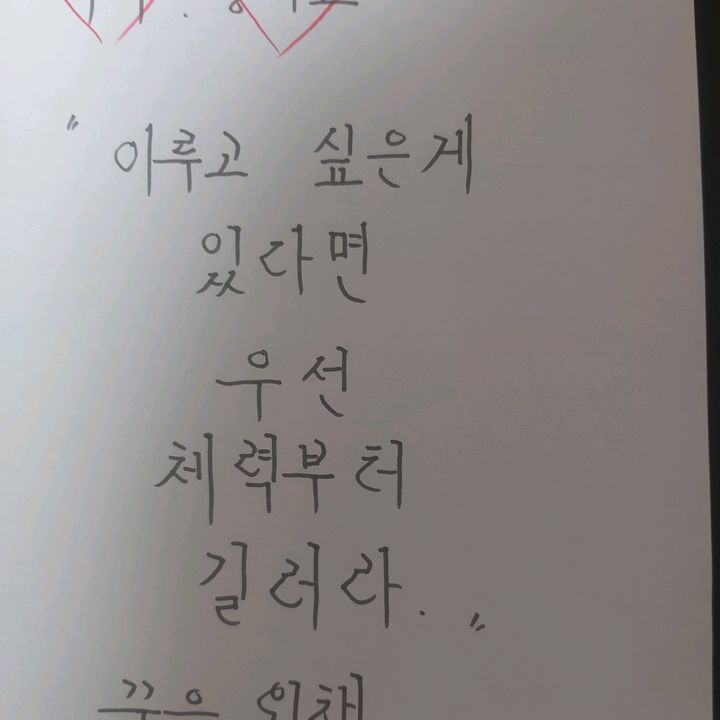 "이루고 싶은게
있다면
우선
체력부터
길러라."